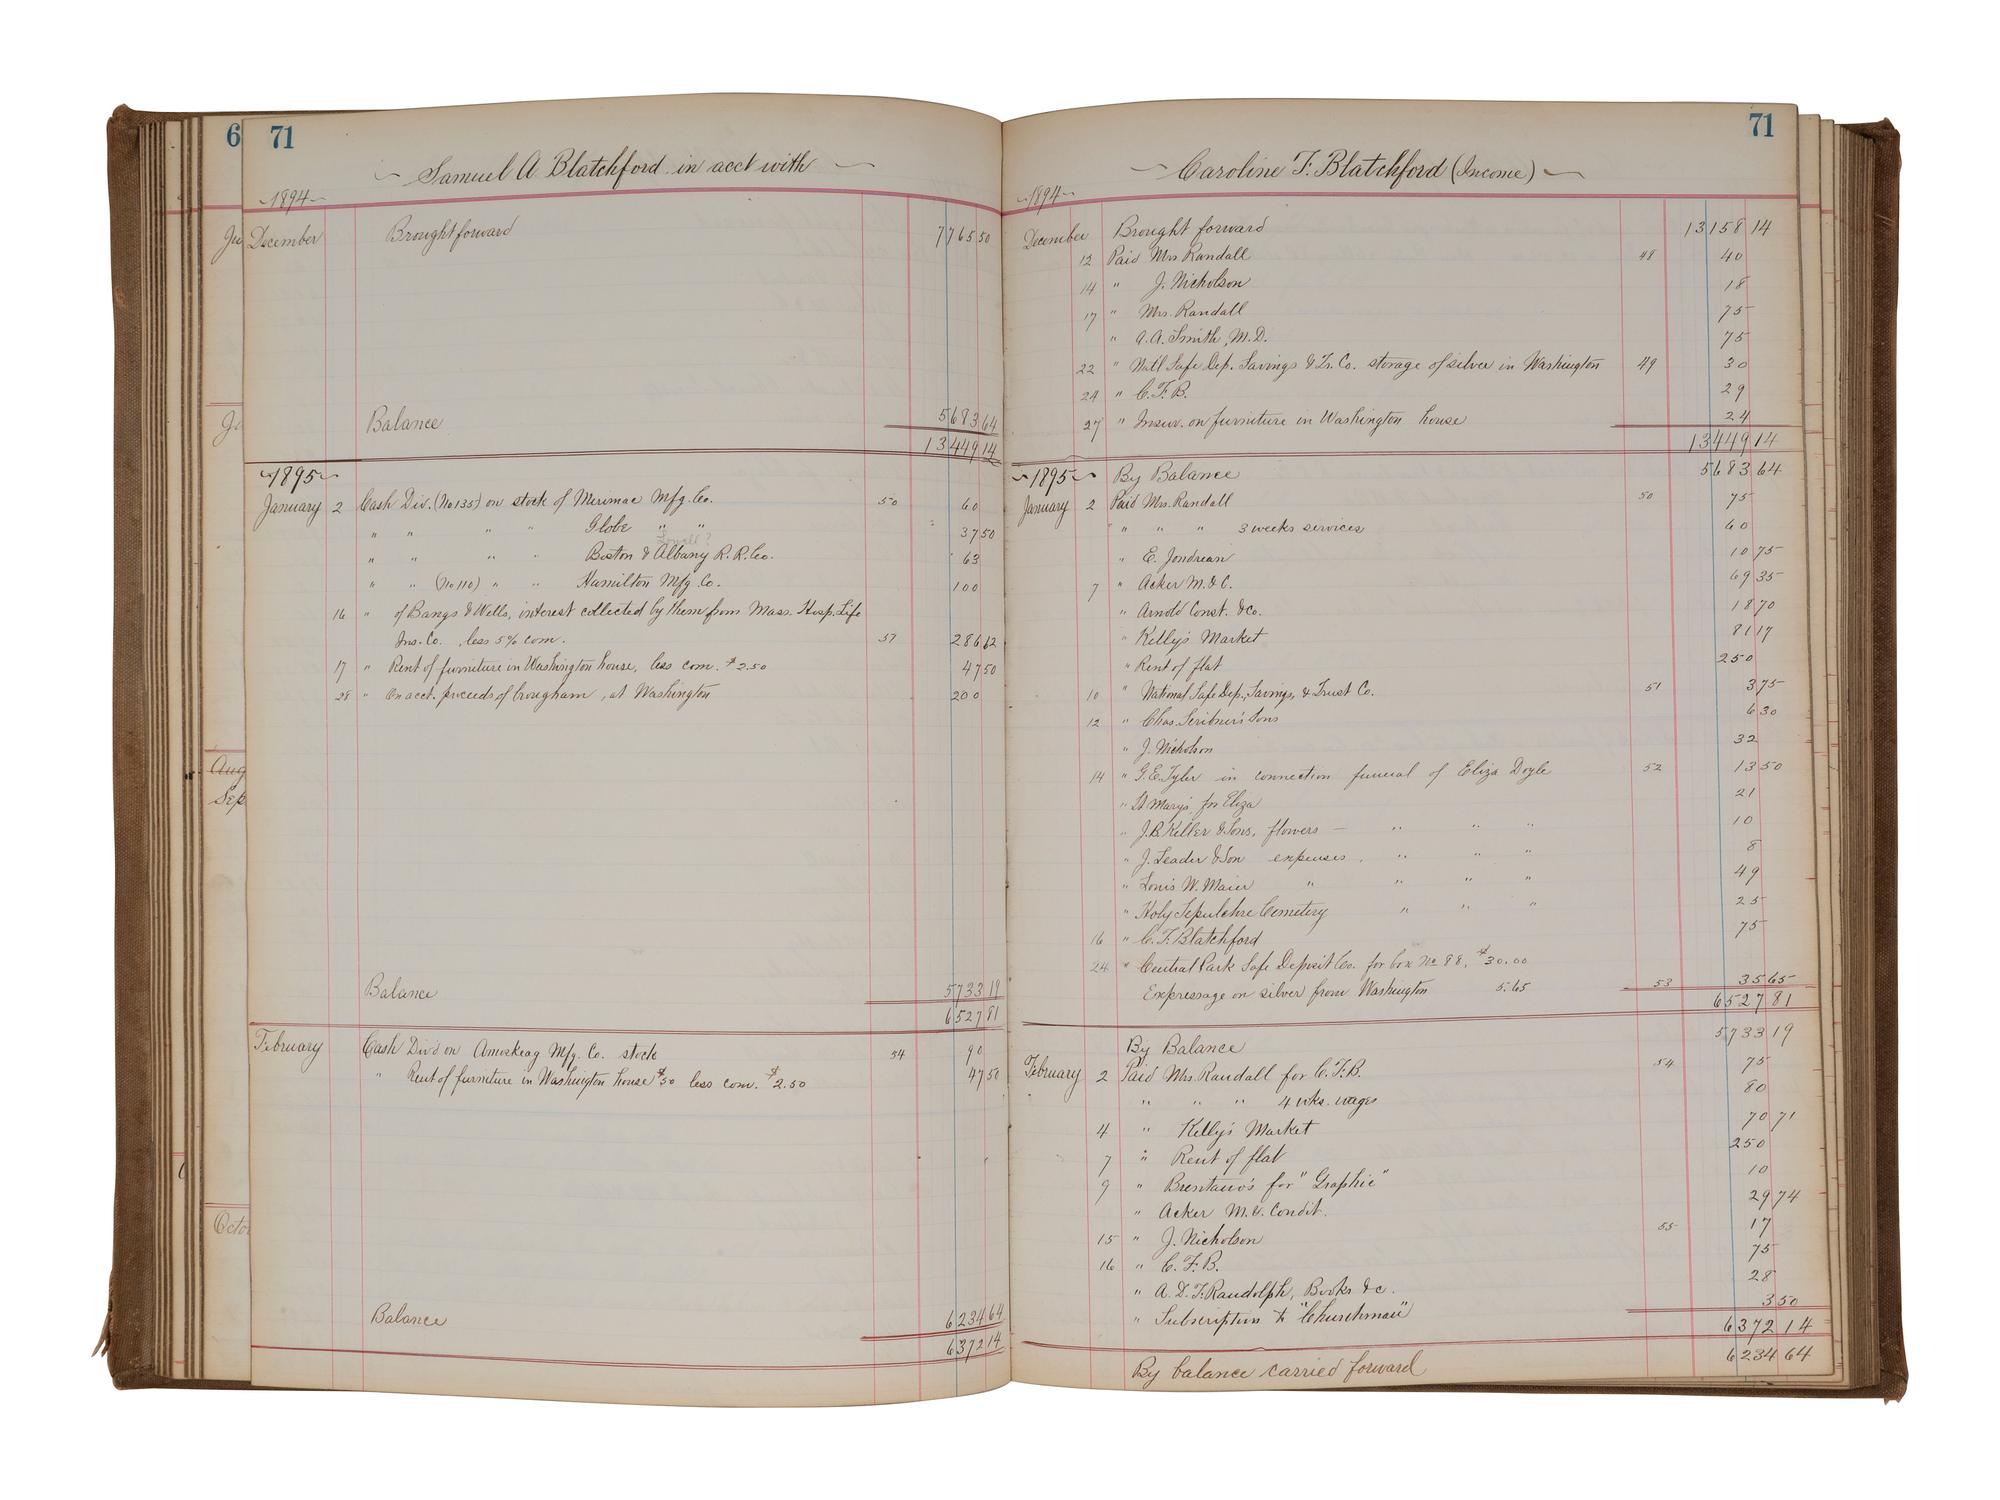 6
71
Samuel A Blatchford in acct with
1894
December Brought forward 7765 50
Balance 5683 64
13449 14
1895
January 2 Cash Div. (No 135) on stock of Merimac Mfg. Co. 50 60
" " " " Globe " " 37 50
Lowell?
" " " " Boston & Albany R. R. Co. 63
" " (No 110) " " Hamilton Mfg. Co. 100
16 " of Bangs & Wells, interest collected by them from Mass. Hosp. Life
Ins. Co., less 5% com. 57 286 62
17 " Rent of furniture in Washington house, less com. $2.50 47 50
28 " On acct. proceeds of brougham, at Washington 200
Balance 5733 19
6527 81
February Cash Div'd on Amoskeag Mfg. Co. stock 54 90
" Rent of furniture in Washington house $50 less com. $2.50 47 50
Balance 6234 64
6372 14
Ju
Ja
Aug
Sep
Octo
71
Caroline F. Blatchford (Income)
1894
December Brought forward 13158 14
12 Paid Mrs Randall 48 40
14 " J. Nicholson 18
17 " Mrs. Randall 75
" A. A. Smith, M.D. 75
22 " Nat'l Safe Dep. Savings & Tr. Co. storage of silver in Washington 49 30
24 " C. F. B. 29
27 " Insur. on furniture in Washington house 24
13449 14
1895 By Balance 5683 64
January 2 Paid Mrs. Randall 50 75
" " " 3 weeks services 60
" E. Jondrean 10 75
7 " Acker M. & C. 69 35
" Arnold Const. & Co. 18 70
" Kelly's Market 81 17
" Rent of flat 250
10 " National Safe Dep., Savings, & Trust Co. 51 3 75
12 " Chas. Scribner's Sons 6 30
" J. Nicholson 32
14 " G. E. Tyler in connection funeral of Eliza Doyle 52 13 50
" St Mary's for Eliza 21
" J. B. Keller & Sons, flowers — " " " 10
" J. Leader & Son expenses, " " " 8
" Louis W. Maier " " " " 49
" Holy Sepulchre Cemetery " " " 25
16 " C. F. Blatchford 75
24 " Central Park Safe Deposit Co. for box No 88, $30.00
Expressage on silver from Washington 5.65 53 35 65
6527 81
By Balance 5733 19
February 2 Paid Mrs. Randall for C. F. B. 54 75
" " " 4 wks. wages 80
4 " Kelly's Market 70 71
7 " Rent of flat 250
9 " Brentano's for "Graphic" 10
" Acker M. & Condit. 29 74
15 " J. Nicholson 55 17
16 " C. F. B. 75
" A. D. F. Randolph, Books &c. 28
" Subscription to "Churchman" 3 50
6372 14
By balance carried forward 6234 64